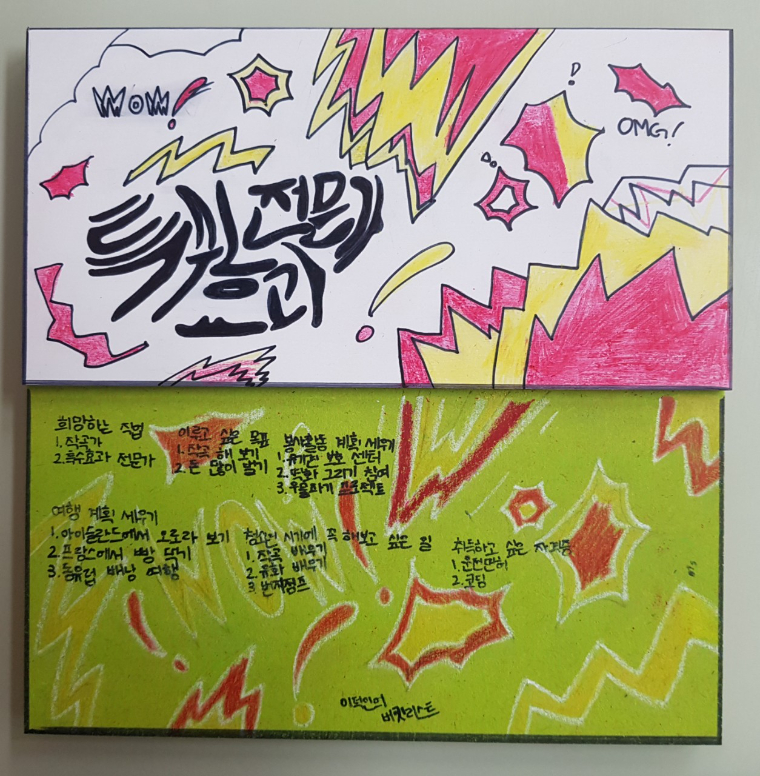 WOW!
OMG!
특수효과 전문가
희망하는 직업
1. 작곡가
2. 특수효과 전문가
이루고 싶은 목표
1. 작곡 해 보기
2. 돈 많이 벌기
봉사활동 계획 세우기
1. 유기견 보호 센터
2. 벽화 그리기 참여
3. 우물파기 프로젝트
여행 계획 세우기
1. 아이슬란드에서 오로라 보기
2. 프랑스에서 빵 먹기
3. 동유럽 배낭 여행
청소년 시기에 꼭 해보고 싶은 일
1. 작곡 배우기
2. 유화 배우기
3. 번지점프
취득하고 싶은 자격증
1. 운전면허
2. 코딩
WOW!
버킷리스트